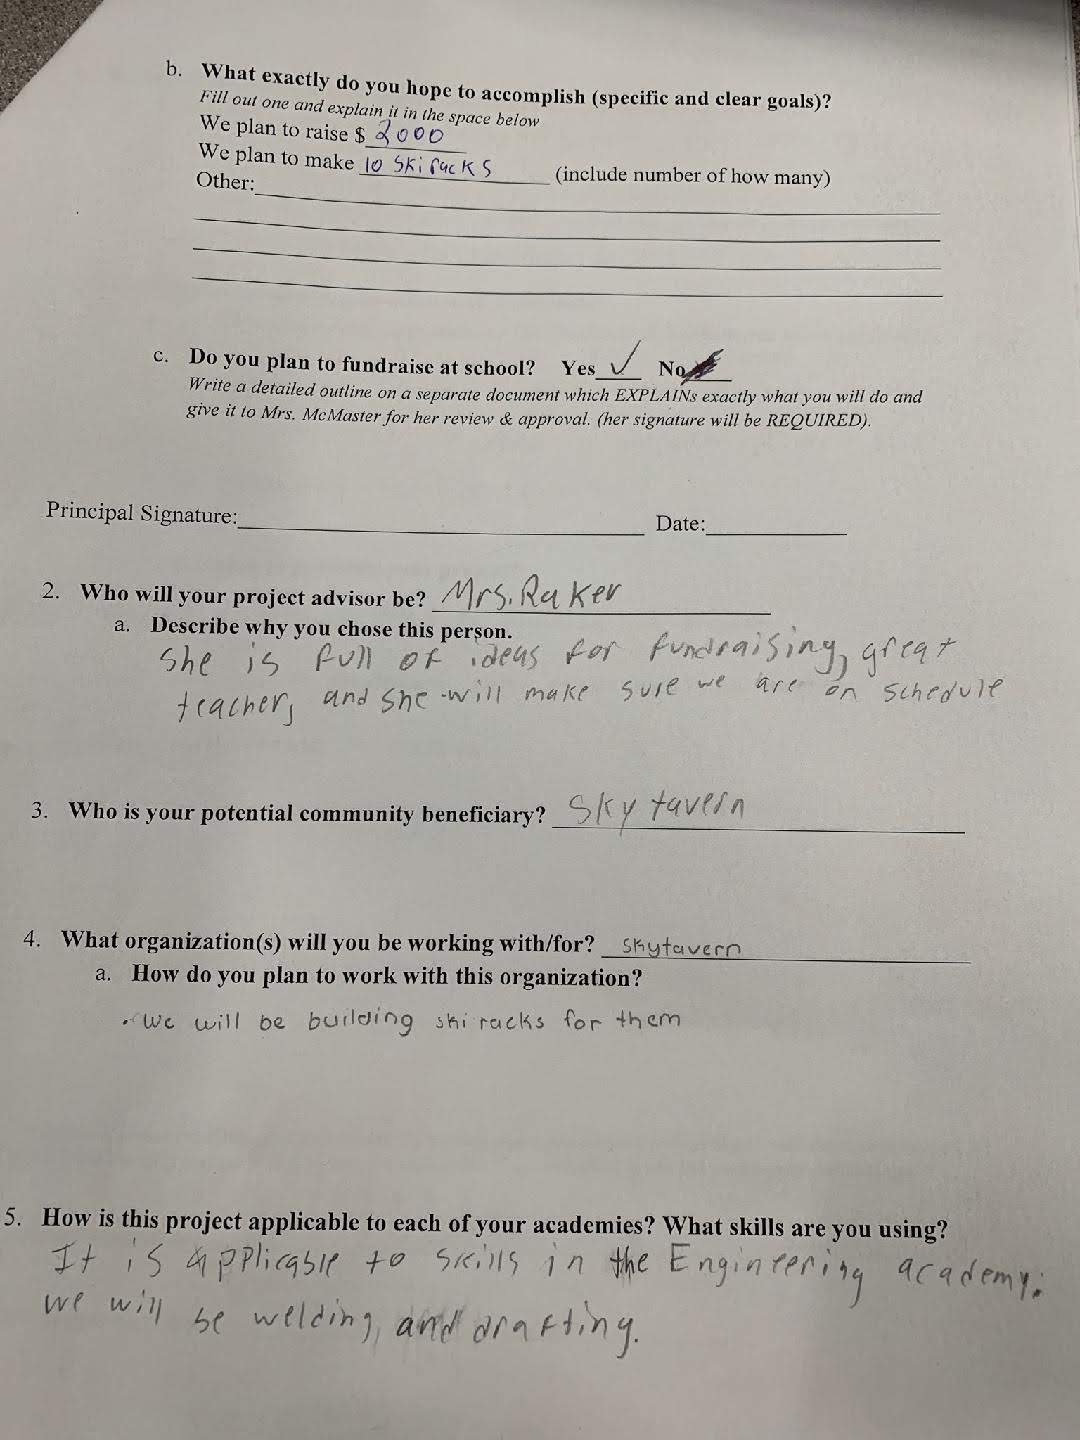 b. What exactly do you hope to accomplish (specific and clear goals)?
Fill out one and explain it in the space below
We plan to raise $ 2000
We plan to make 10 ski racks (include number of how many)
Other:
c. Do you plan to fundraise at school? Yes ✓ No
Write a detailed outline on a separate document which EXPLAINs exactly what you will do and
give it to Mrs. McMaster for her review & approval. (her signature will be REQUIRED).
Principal Signature: Date:
2. Who will your project advisor be? Mrs. Raker
a. Describe why you chose this person.
She is full of ideas for fundraising, great
teacher, and she will make sure we are on schedule
3. Who is your potential community beneficiary? Sky tavern
4. What organization(s) will you be working with/for? skytavern
a. How do you plan to work with this organization?
• We will be building ski racks for them
5. How is this project applicable to each of your academies? What skills are you using?
It is applicable to skills in the Engineering academy.
we will be welding, and drafting.